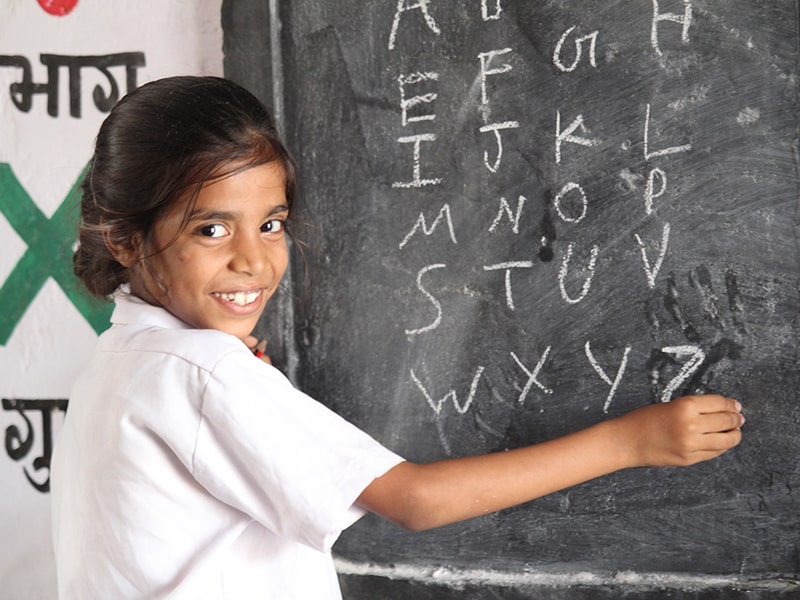 भाग
×
गु
A
E F G H
I J K L
M N O P
S T U V
W X Y Z